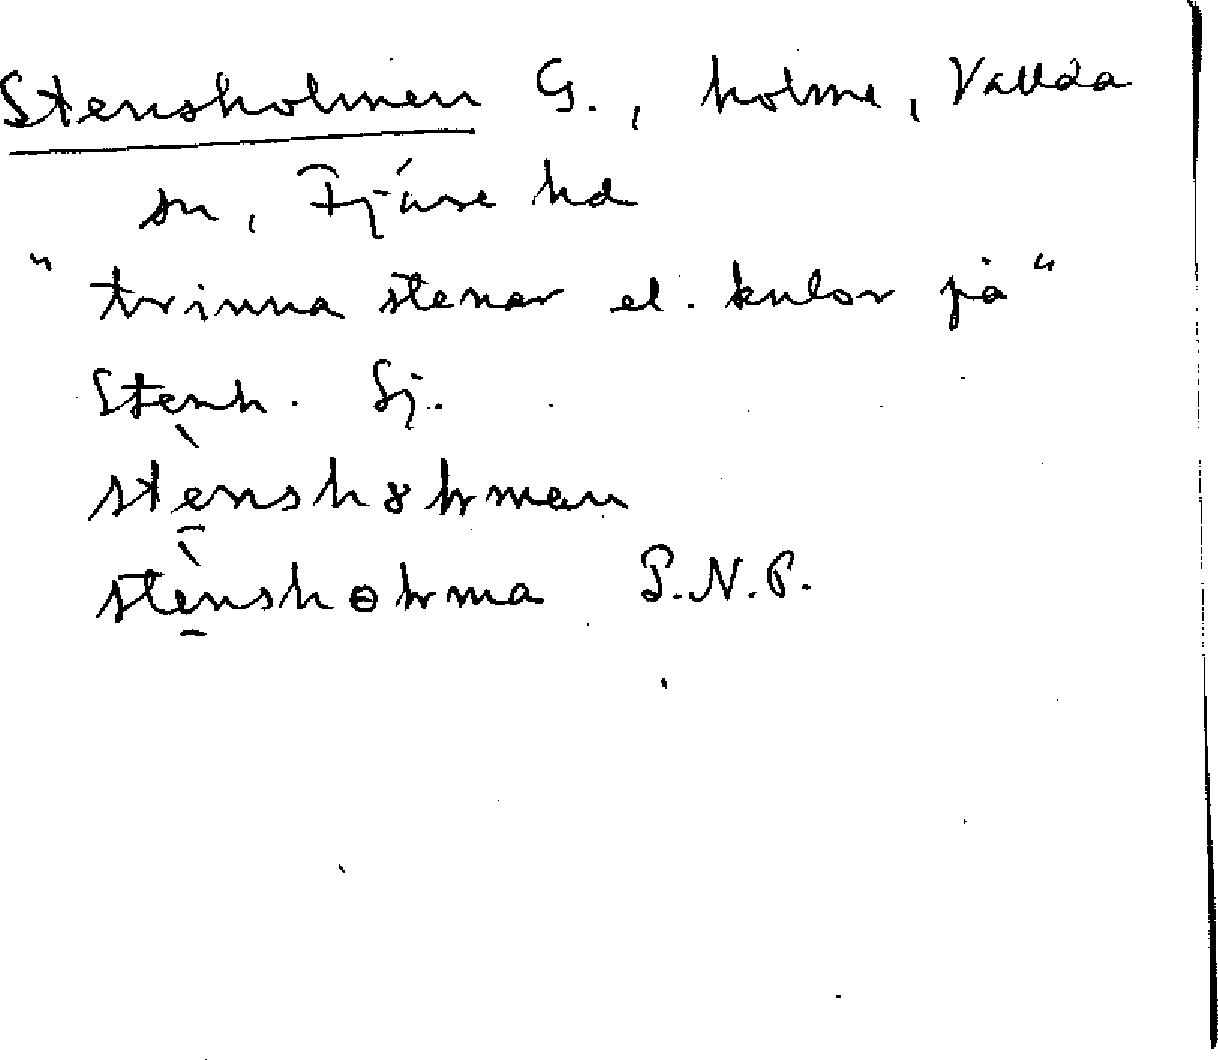 Stensholmen G., holme, Vallda
sn, Fjäre hd
"trinna stenar el. kulor på"
Stenh. Sj.
stènshȣlmen
stènshɵlma P.N.P.